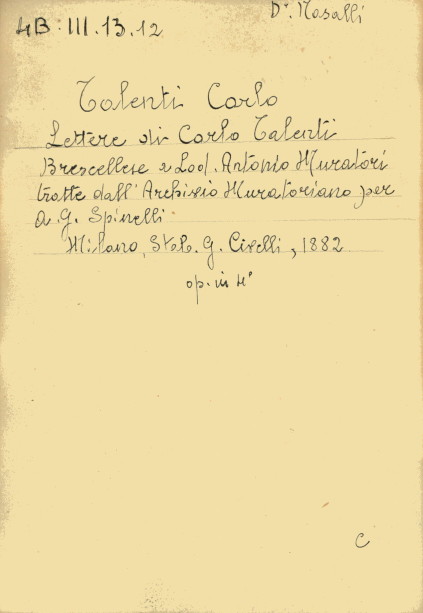 4B.III.13.12
Dr. Mosalli
Talenti Carlo
Lettere di Carlo Talenti
Brescellese a Lod. Antonio Muratori
tratte dall'Archivio Muratoriano per
A. G. Spinelli.
Milano, Stab. G. Civelli, 1882
op. in 4°
C